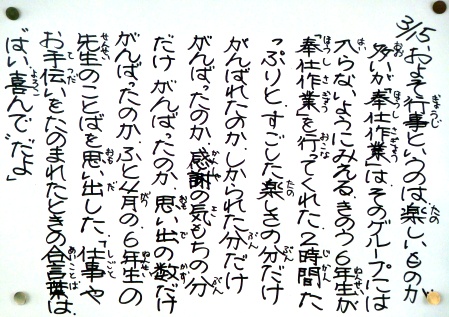 3/15、およそ行事というのは楽しいものが
多いが「奉仕作業」は、そのグループには
入らない、ようにみえる。きのう6年生が
「奉仕作業」を行ってくれた。2時間た
っぷりと。すごした楽しさの分だけ
がんばれたのか、しかられた分だけ
がんばったのか、感謝の気もちの分
だけがんばったのか、思い出の数だけ
がんばったのか。ふと4月の6年生の
先生のことばを思い出した。「仕事や
お手伝いをたのまれたときの合言葉は、
ばい喜んで〟だよ」